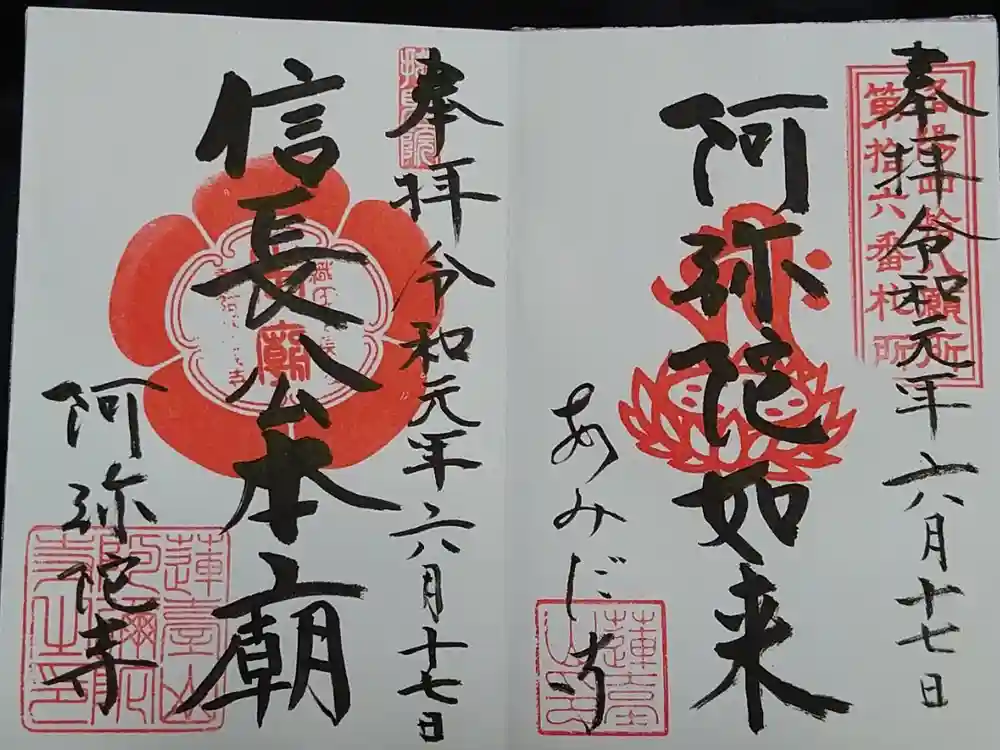 奉拝 令和元年 六月十七日
第拾六番札所
阿弥陀如来
あみだ寺
奉拝 令和元年 六月十七日
信長公本廟
阿弥陀寺
蓮臺山